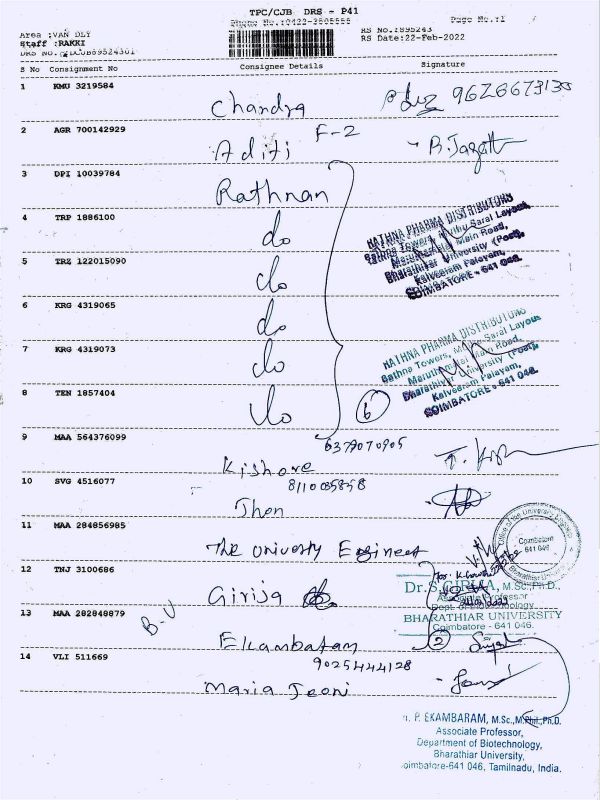 TPC/CJB DRS - P41
Phone No.:0422-3505555 Page No.:1
Area :VAN DLY RS No.:895243
Staff :RAKKI RS Date:22-Feb-2022
S No Consignment No Consignee Details Signature
1 KMU 3219584 Chandra
2 AGR 700142929 Aditi F-2
3 DPI 10039784 Rathnan
4 TRP 1886100 do
5 TRZ 122015090 do
6 KRG 4319065 do
7 KRG 4319073 do
8 TEN 1857404 do 6
RATHNA PHARMA DISTRIBUTORS
Rathna Towers, Muthu Saral Layout,
Maruthamalai Main Road,
Bharathiyar University (Post),
Kalveeram Palayam,
COIMBATORE - 641 046.
RATHNA PHARMA DISTRIBUTORS
Rathna Towers, Muthu Saral Layout
Maruthamalai Main Road,
Bharathiyar University (Post),
Kalveeram Palayam,
COIMBATORE - 641 046.
9 MAA 564376099 Kishore 6379070905
10 SVG 4516077 Jhon
11 MAA 284856985 The University Engineer
Coimbatore
641 046
12 TNJ 3100686 Girija
Dr.S.GIRIJA, M.Sc.,Ph.D.,
Professor
Dept. of Biotechnology
BHARATHIAR UNIVERSITY
Coimbatore - 641 046.
B-U
13 MAA 282848879 Ekambaram 2
9025444128
14 VLI 511669 Maria Jeoni
P. EKAMBARAM, M.Sc.,M.Phil.,Ph.D.
Associate Professor,
Department of Biotechnology,
Bharathiar University,
oimbatore-641 046, Tamilnadu, India.